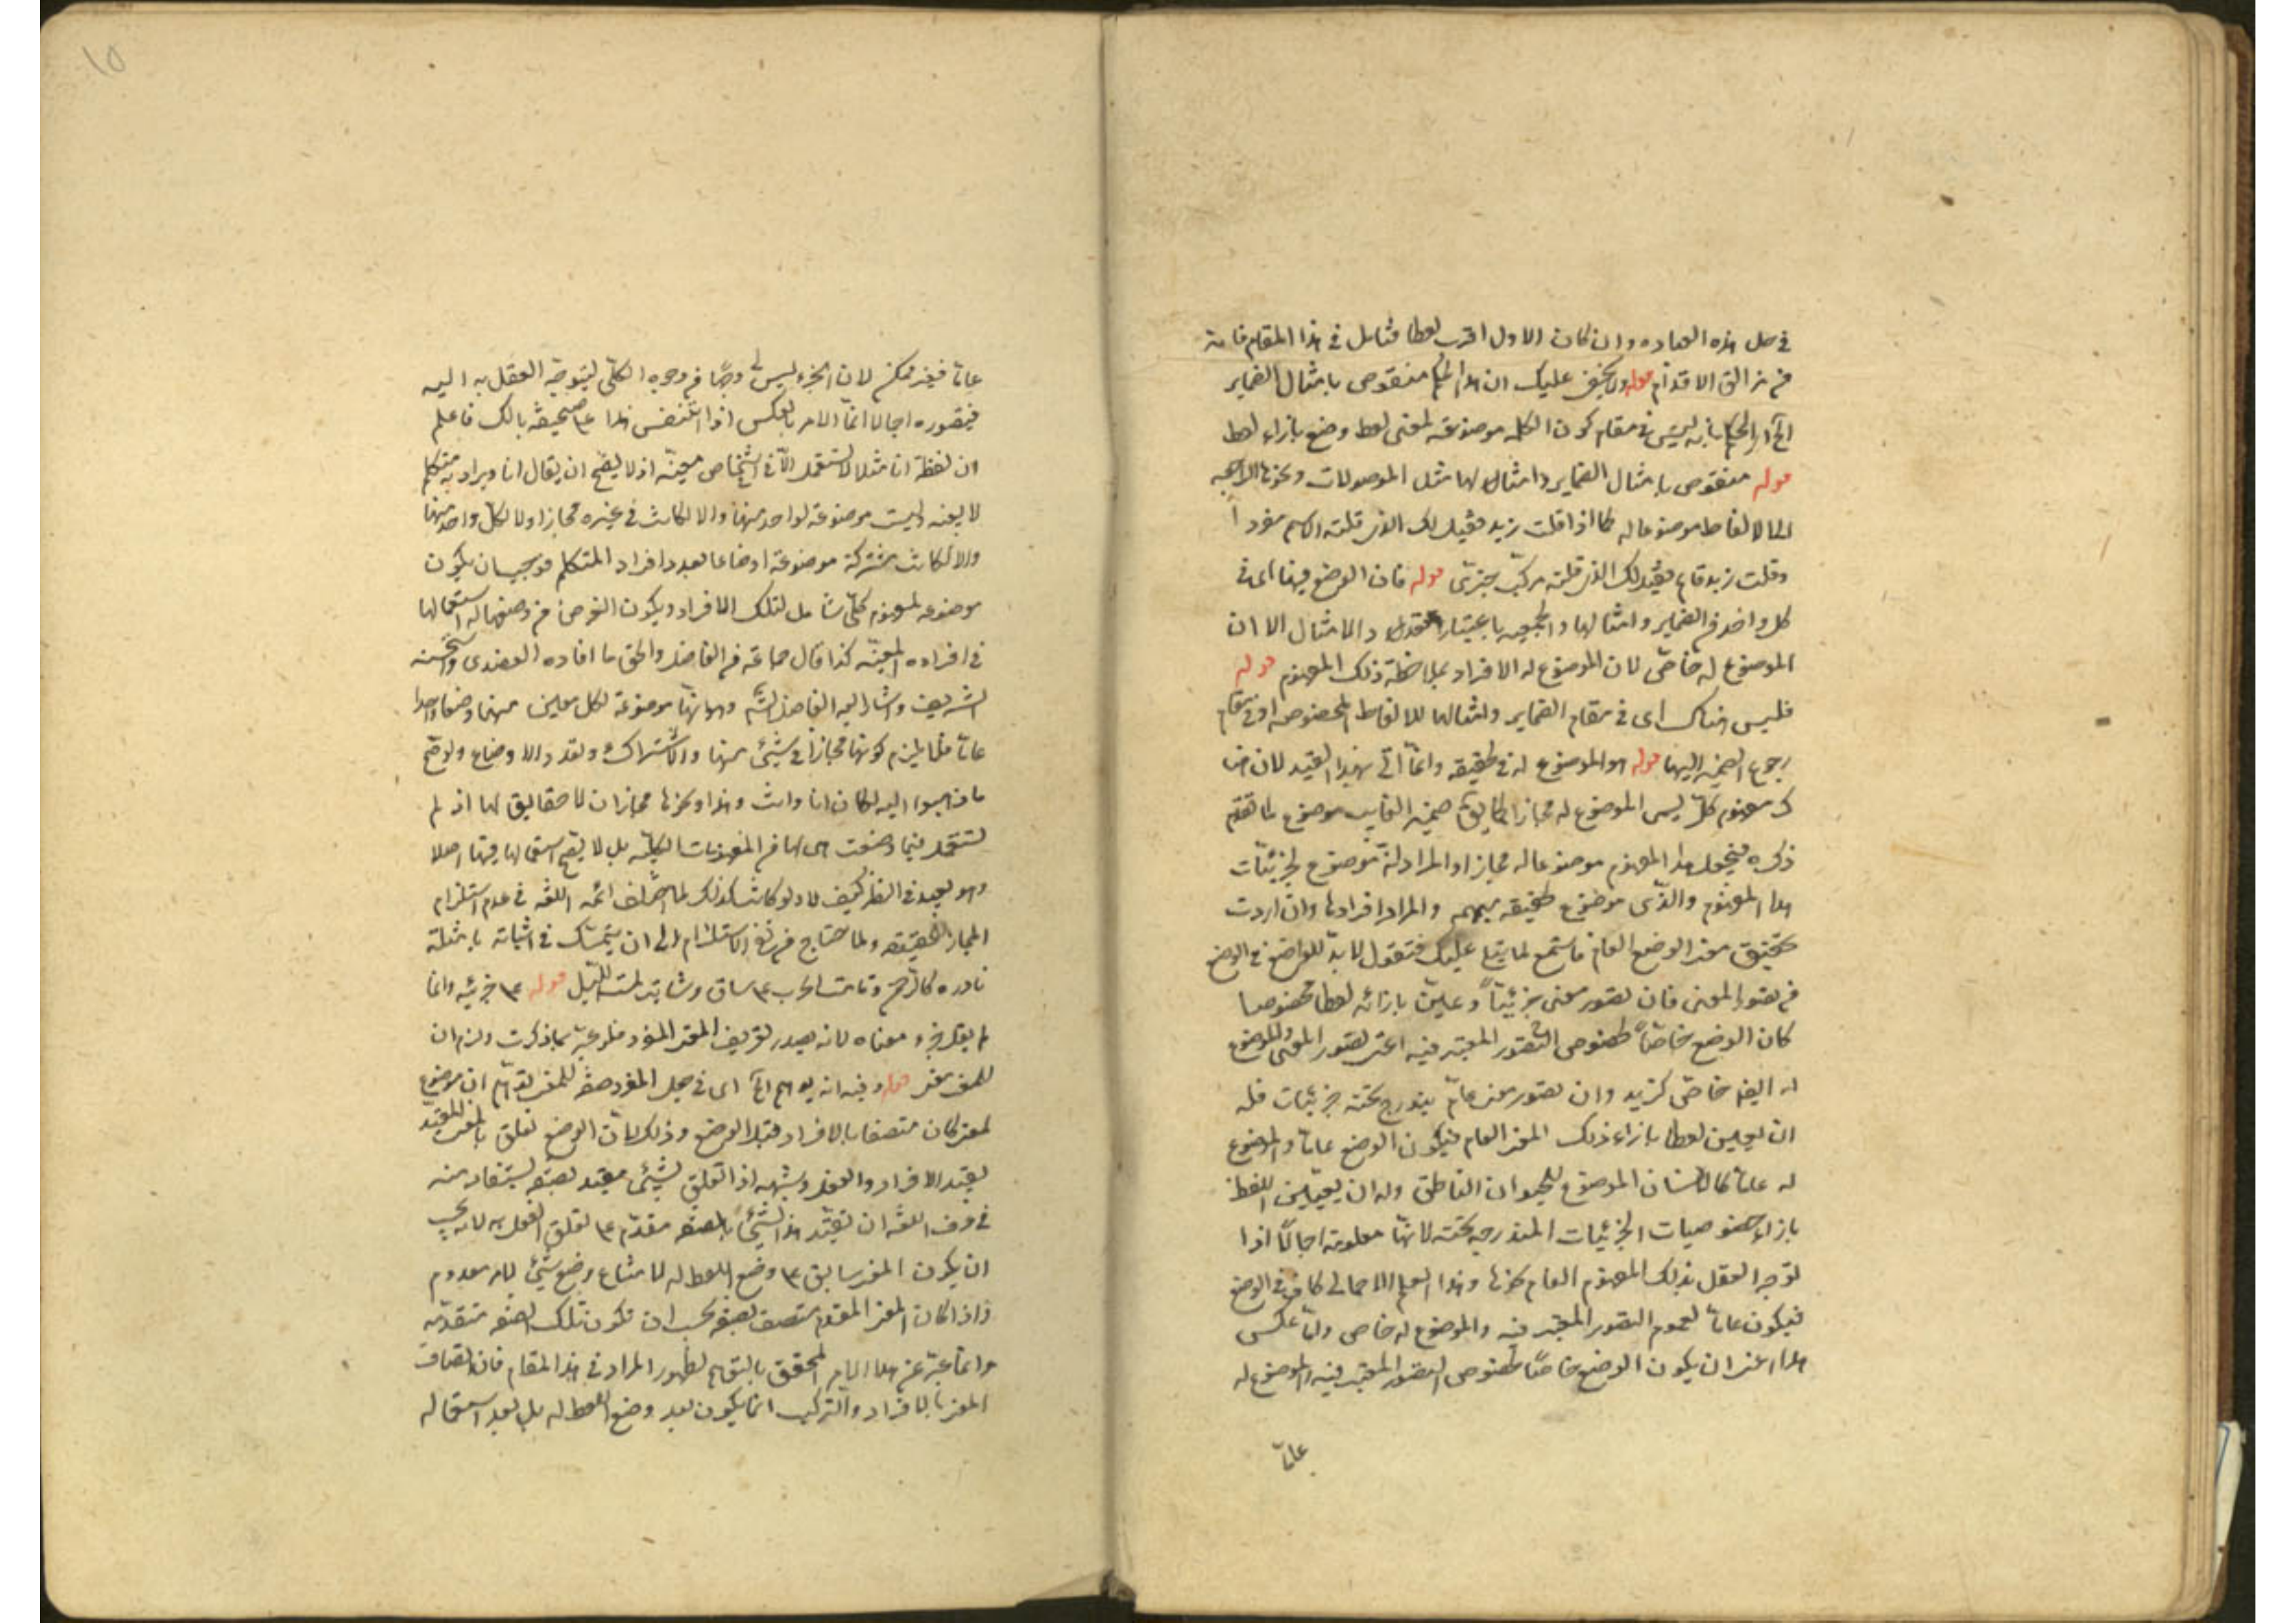 في حل هذه العباره وان كان الاول اقرب لفظا فتامل في هذا المقام فانه
من مزالق الاقدام قوله ولا يخفى عليك ان هذا الحكم منقوض بامثال الضماير
الخ اى الحكم بانه ليس في مقام كون الكلمة موضوعة لمعنى لفظ وضع بازاء لفظ
قوله منقوض بامثال الضماير وامثالها مثل الموصولات ونحوها الراجعة
الى الالفاظ موضوعا له كما اذا قلت زيد فقيل لك الذى قلته اسم مفرد
وقلت زيد قايم فقيل لك الذى قلته مركب خبرى قوله فان الوضع فيها اى في
كل واحد من الضماير وامثالها والجمعية باعتبار تعدد الامثال الا ان
الموضوع له خاص لان الموضوع له الافراد بملاحظة ذلك المفهوم قوله
فليس هناك اى في مقام الضماير وامثالها للالفاظ المخصوصة او في مقام
رجوع الضمير اليها قوله هو الموضوع له في الحقيقه وانما اتى بهذا القيد لان هنا
ك مفهوم كلى ليس الموضوع له مجازا كما يق ضمير الغايب موضوع لما تقدم
ذكره فيجعل هذا المفهوم موضوعا له مجازا والمراد انه موضوع لجزئيات
هذا المفهوم والذى موضوع حقيقه مبهم والمراد افرادها وان اردت
تحقيق معنى الوضع العام فاستمع لما يتلى عليك فنقول لا بد للواضع في الوضع
من تصور المعنى فان تصور معنى جزئيا وعين بازائه لفظا مخصوصا
كان الوضع خاصا لخصوص التصور المعتبر فيه اعنى تصور المعنى والموضوع
له ايضا خاص كزيد وان تصور معنى عام يندرج تحته جزئيات فله
ان يعين لفظا بازاء ذلك المعنى العام فيكون الوضع عاما والموضوع
له عاما كالانسان الموضوع للحيوان الناطق وله ان يعين اللفظ
بازاء خصوصيات الجزئيات المندرجه تحته لانها معلومة اجمالا اذا
توجه العقل بذلك المفهوم العام نحوها وهذا العلم الاجمالى كاف في الوضع
فيكون عاما لعموم التصور المعتبر فيه والموضوع له خاص واما عكس
هذا اعنى ان يكون الوضع خاصا لخصوص التصور المعتبر فيه والموضوع له
عاما
١٥
عاما فغير ممكن لان الجزء ليس وجها من وجوه الكلى ليتوجه العقل به اليه
فيتصوره اجمالا انما الامر بالعكس اذا انتقض هذا على صحيفة بالك فاعلم
ان لفظة انا مثلا لا تستعمل الا في اشخاص معينة اذ لا يصح ان يقال انا ويراد به متكلم
لا بعينه وليست موضوعة لواحد منها والا لكانت في غيره مجازا ولا لكل واحد منها
والا لكانت مشتركة موضوعة اوضاعا بعدد افراد المتكلم فوجب ان يكون
موضوعه لمفهوم كلى شامل لتلك الافراد ويكون الغرض من وضعها له استعمالها
في افراده المعينة كذا قال جماعة من الفاضل والحق ما افاده العضدى واستحسنه
الشريف واشار اليه الفاضل الش وهو انها موضوعة لكل معين منها وضعا واحدا
عاما فلا يلزم كونها مجازا في شئ منها والاشتراك وتعدد الاوضاع ولو صح
ما ذهبوا اليه لكان انا وانت وهذا ونحوها مجازات لا حقايق لها اذ لم
تستعمل فيما وضعت هى لها من المفهومات الكلية بل لا يصح استعمالها فيها اصلا
وهو بعيد في النظر كيف لا ولو كانت كذلك لما اختلف ائمه اللغه في عدم استلزام
المجاز الحقيقه ولما احتاج من نفى الاستلزام الى ان يتمسك في اثباته بامثلة
نادره كالرحمن وقامت الحرب على ساق وشابت لمة الليل قوله على جزئيه وانما
لم يقل جزء معناه لانه بصدد تعريف المعنى المفرد فلو عبر بما ذكرت ولزم ان
للمعنى معنى قوله وفيه انه يوهم الخ اى في جعل المفرد صفة للمعنى لتوهم ان موضوع
لمعنى كان متصفا بالافراد قبل الوضع وذلك لان الوضع تعلق بالمعنى المقيد
بقيد الافراد والفعل وشبهه اذا تعلق بشئ مقيد بصفة يستفاد منه
في عرف اللغه ان تقيد هذا الشئ بالصفه مقدم على تعلق الفعل به لانه يجب
ان يكون المعنى سابق على وضع اللفظ له لامتناع وضع شئ لامر معدوم
واذا كان المعنى المقدم متصف بصفة يجب ان تكون تلك الصفه متقدمه
وانما عبر عن هذا الامر المحقق بالتوهم لظهور المراد في هذا المقام فان اتصاف
المعنى بالافراد والتركيب انما يكون بعد وضع اللفظ له بل بعد استعماله